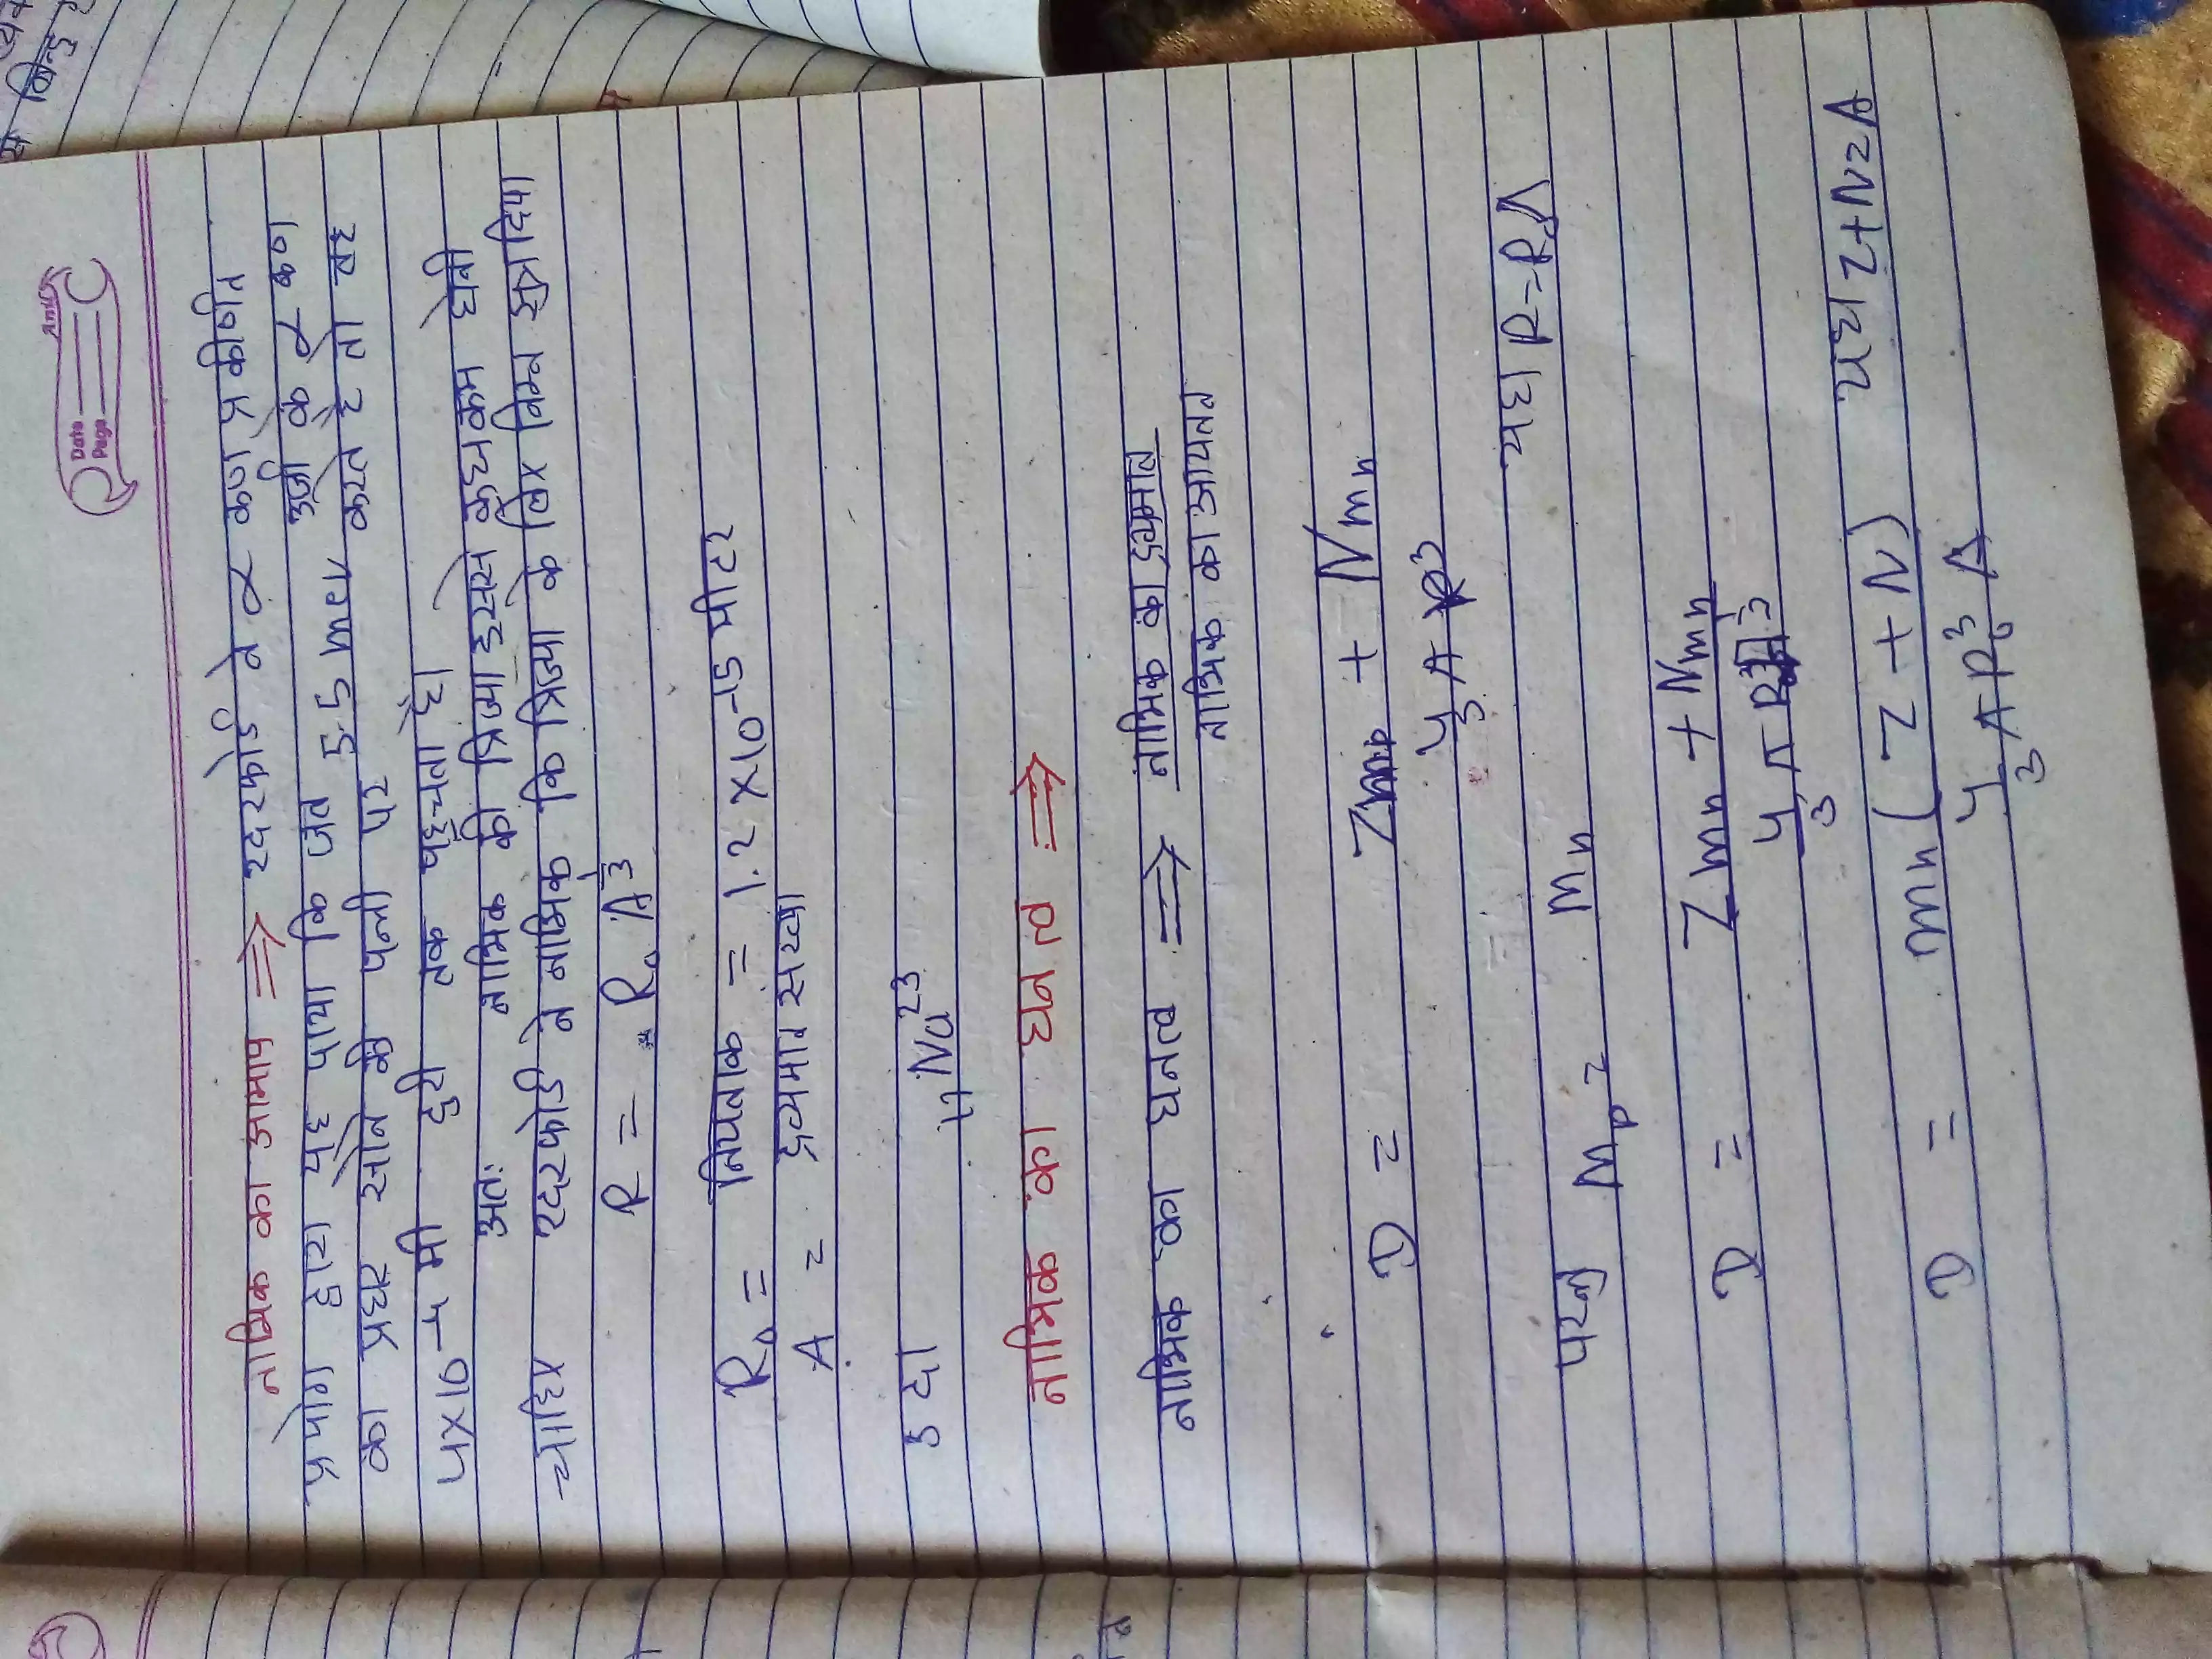 Date
Page
नाभिक का आमाप ⇒ रदरफोर्ड ने α कण प्रकीर्णन
प्रयोग द्वारा यह पाया कि जब 5.5 mev उर्जा के α कण
का प्रहार सोने की पन्नी पर करते है तो वह
4×10⁻⁴ मी दुरी तक पहूचता है।
अतः नाभिक की त्रिज्या इससे कुछ कम होनी
चाहिए रदरफोर्ड ने नाभिक कि त्रिज्या के लिए निम्न सुत्र दिया
R = R₀ A^1/3
R₀ = नियतांक = 1.2 ×10⁻¹⁵ मीटर
A = द्रव्यमान सख्या
उदा ₁₁Na²³
नाभिक का घनत्व ⇒
नाभिक का घनत्व ⇒ नाभिक का द्रव्यमान
नाभिक का आयतन
D = Zmp + Nmn
4/3 π R³
यहा R = R₀
परन्तु Mp = Mn
D = Zmn + Nmn
4/3 π
D = mn ( Z + N) यहा Z+N=A
4/3 π R₀³ A